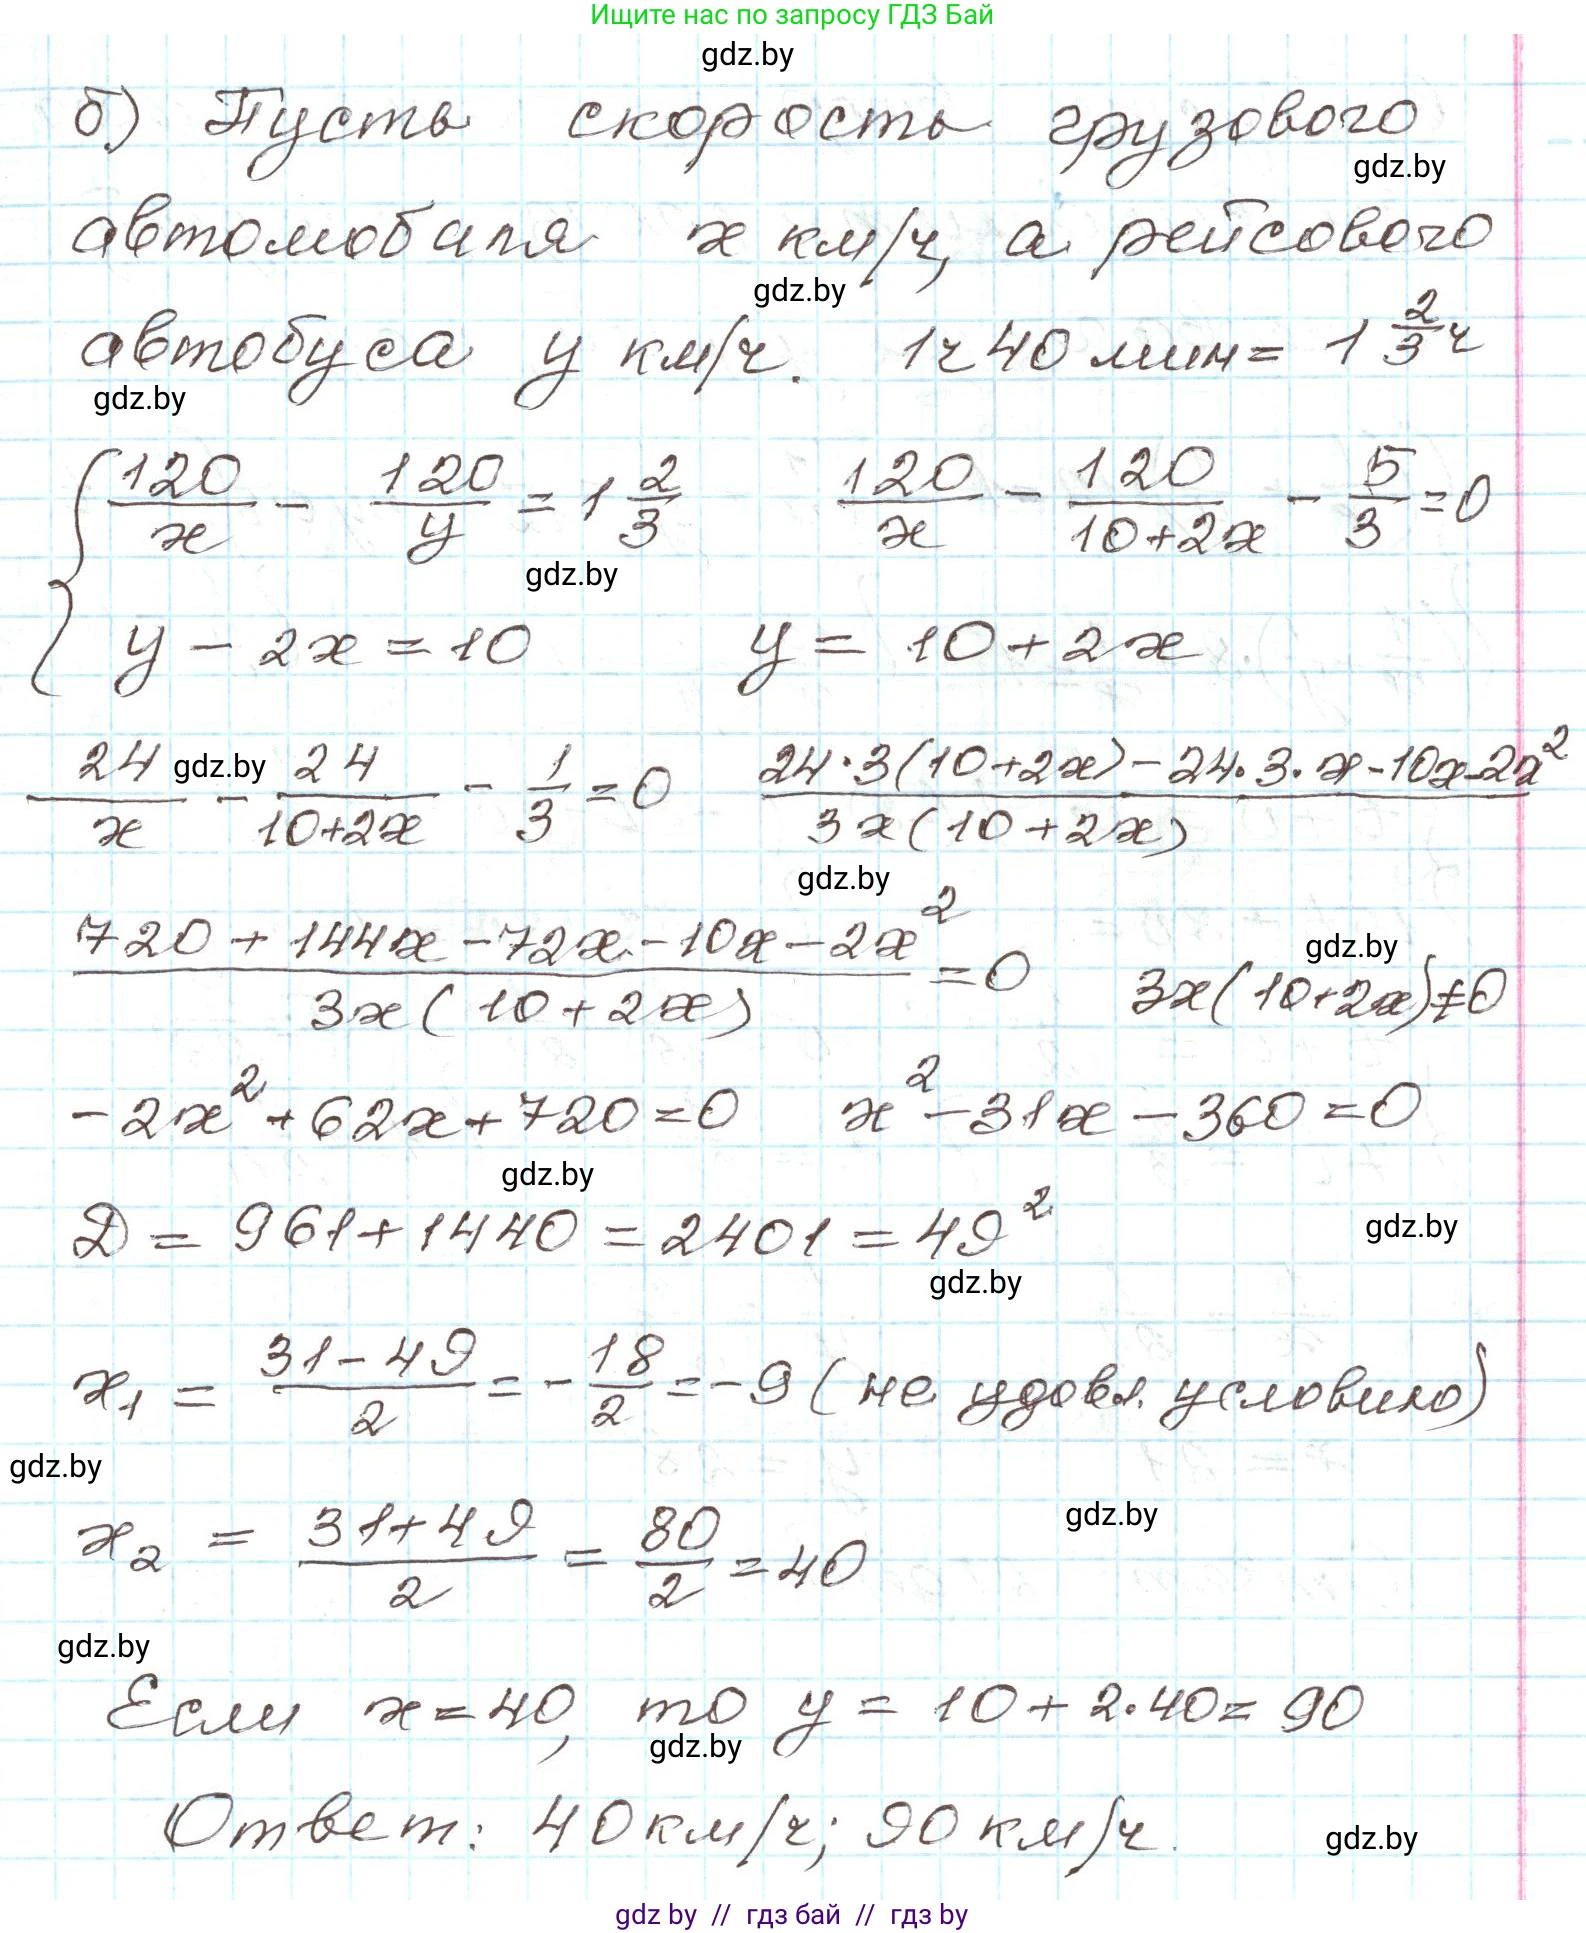 Ищите нас по запросу ГДЗ Бай
gdz.by
б) Пусть скорость грузового
gdz.by
автомобиля x км/ч, а рейсового
gdz.by
автобуса y км/ч. 1ч 40 мин = 1 2/3 ч
gdz.by
{ 120/x - 120/y = 1 2/3    120/x - 120/(10+2x) - 5/3 = 0
gdz.by
y - 2x = 10    y = 10 + 2x
24/x - 24/(10+2x) - 1/3 = 0    (24·3(10+2x) - 24·3·x - 10x - 2x²)/(3x(10+2x))
gdz.by
gdz.by
(720 + 144x - 72x - 10x - 2x²)/(3x(10+2x)) = 0    3x(10+2x) ≠ 0
gdz.by
-2x² + 62x + 720 = 0    x² - 31x - 360 = 0
gdz.by
D = 961 + 1440 = 2401 = 49²
gdz.by
gdz.by
x₁ = (31 - 49)/2 = - 18/2 = -9 (не удовл. условию)
gdz.by
x₂ = (31 + 49)/2 = 80/2 = 40
gdz.by
gdz.by
Если x = 40, то y = 10 + 2·40 = 90
gdz.by
Ответ: 40 км/ч; 90 км/ч.
gdz.by
gdz by // гдз бай // гдз by